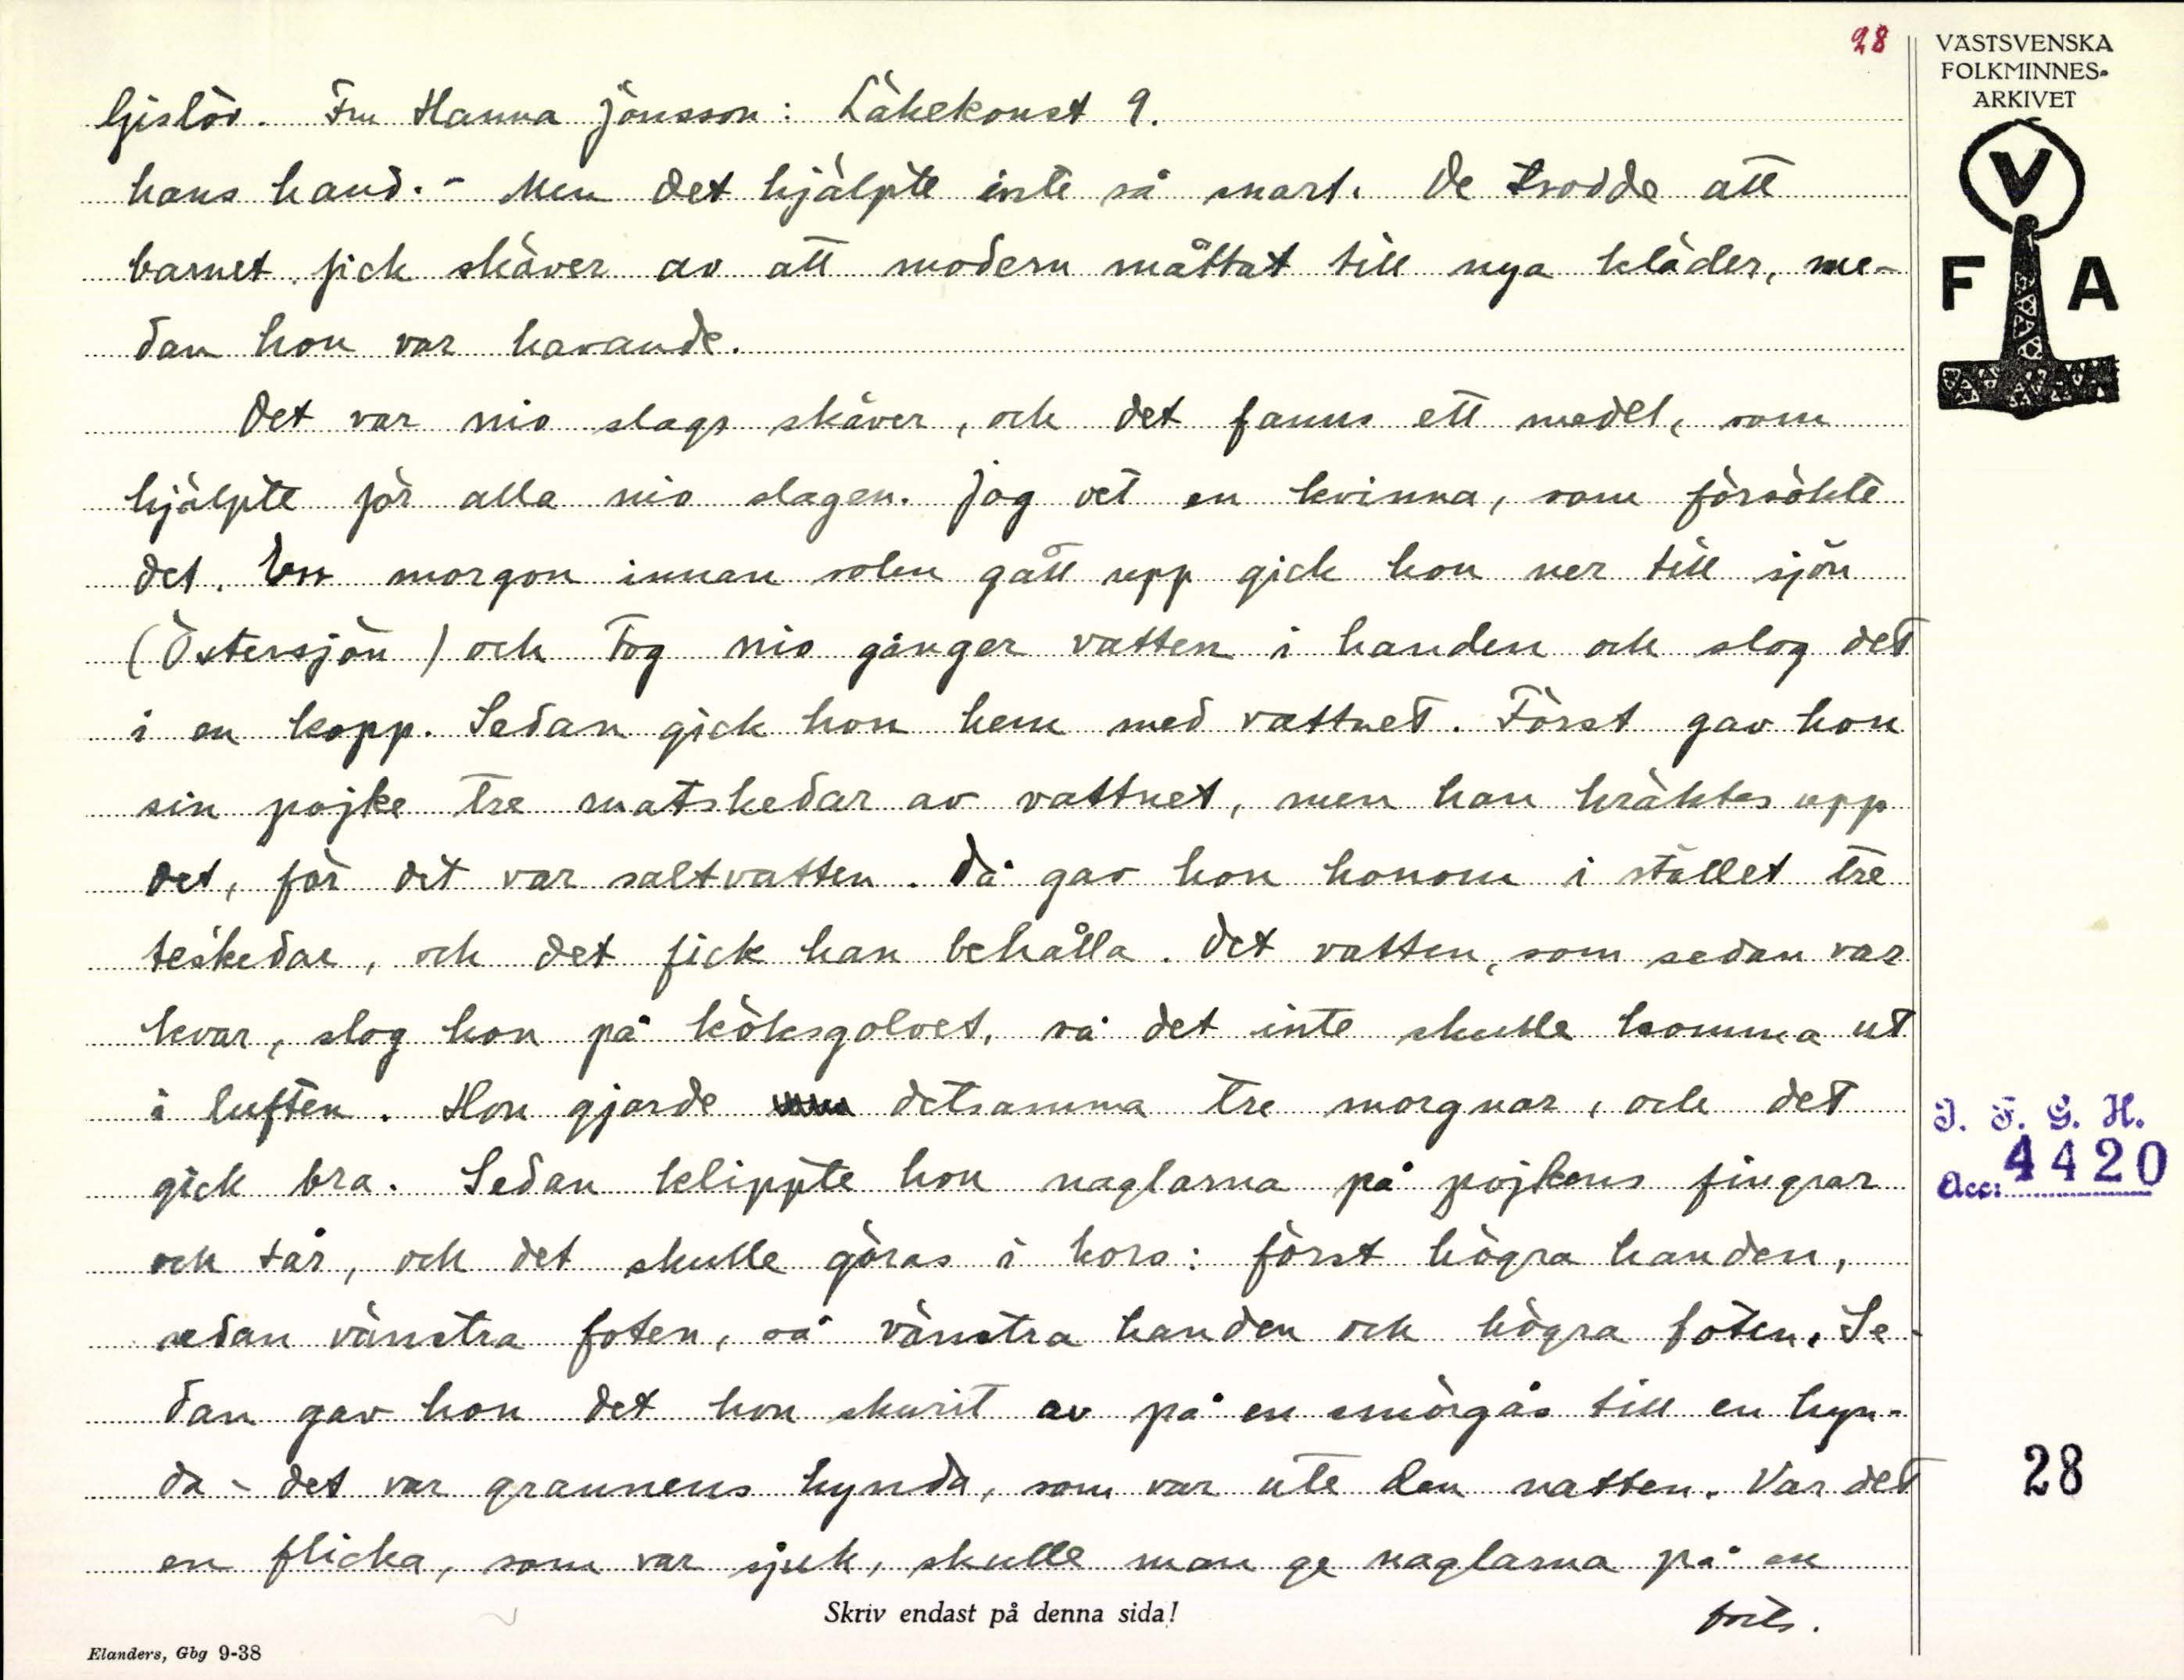 28
Gislöv. Fru Hanna Jönsson: Läkekonst 9.
hans hand. - Men det hjälpte inte så snart. De trodde att
barnet fick skäver av att modern måttat till nya kläder, me-
dan hon var havande.
Det var nio slags skäver, och det fanns ett medel, som
hjälpte för alla nio slagen. Jag vet en kvinna, som försökte
det. En morgon innan solen gått upp gick hon ner till sjön
(Östersjön) och tog nio gånger vatten i handen och slog det
i en kopp. Sedan gick hon hem med vattnet. Först gav hon
sin pojke tre matskedar av vattnet, men han kräktes upp
det, för det var saltvatten. Då gav hon honom i stället tre
teskedar, och det fick han behålla. Det vatten, som sedan var
kvar, slog hon på köksgolvet, så det inte skulle komma ut
i luften. Hon gjorde detsamma tre morgnar, och det
gick bra. Sedan klippte hon naglarna på pojkens fingrar
och tår, och det skulle göras i kors: först högra handen,
sedan vänstra foten, så vänstra handen och högra foten. Se-
dan gav hon det hon skurit av på en smörgås till en hyn-
da - det var grannens hynda, som var ute den natten. Var det
en flicka, som var sjuk, skulle man ge naglarna på en
forts.
Skriv endast på denna sida!
Elanders, Gbg 9-38
VÄSTSVENSKA
FOLKMINNES-
ARKIVET
V
F A
I. F. G. H.
Acc: 4420
28